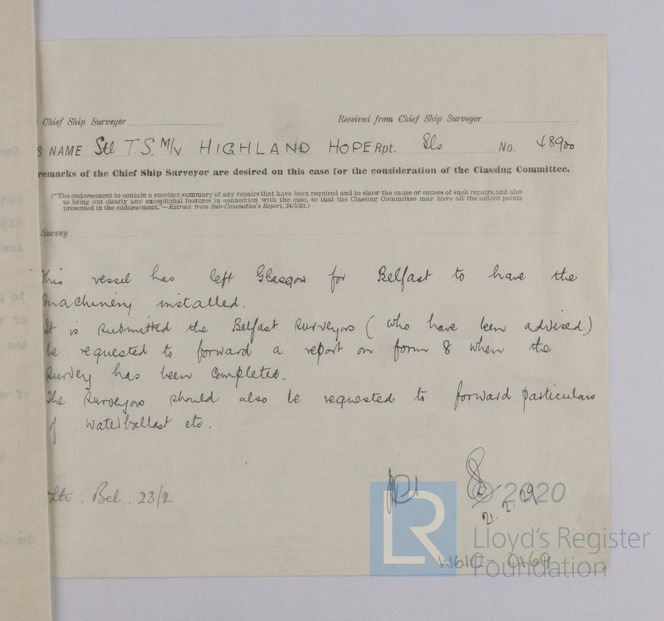 Chief Ship Surveyor Received from Chief Ship Surveyor
S NAME Stl T.S. M/V HIGHLAND HOPE Rpt. Gls No. 48900
remarks of the Chief Ship Surveyor are desired on this case for the consideration of the Classing Committee.
("The endorsement to contain a succinct summary of any repairs that have been required and to show the cause or causes of such repairs, and also
to bring out clearly any exceptional features in connection with the case, so that the Classing Committee may have all the salient points
presented in the endorsement."—Extract from Sub-Committee's Report,
Survey
This vessel has left Glasgow for Belfast to have the
machinery installed.
It is submitted the Belfast Surveyors (who have been advised)
be requested to forward a report on form 8 when the
survey has been completed.
The Surveyors should also be requested to forward particulars
of waterballast etc.
Ltr. Bel. 23/2
21.2.29
© 2020
LR
Lloyd's Register
Foundation
W610-0169